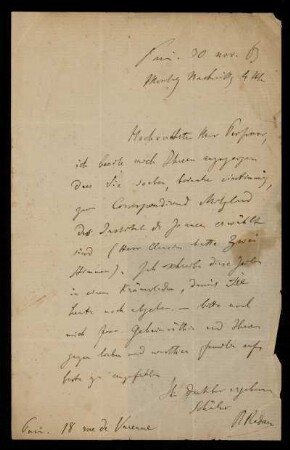 Paris. 30 nov. 63
Montag Nachmittag 4 Uhr
Hochverehrter Herr Professor,
ich beeile mich Ihnen anzuzeigen
dass Sie soeben, beinahe einstimmig,
zum Correspondirend Mitglied
des Instituts de France erwählt
sind (Herr Clausius hatte zwei
Stimmen). Ich schreibe diese Zeilen
in einem Krämerladen, damit Sie
heute noch abgehen. — bitte noch
mich Frau Geheimräthin und Ihrer
ganzen lieben und werthen Familie aufs
beste zu empfehlen
Ihr dankbar ergebener
Schüler
R Radau
Paris. 18 rue de Varenne